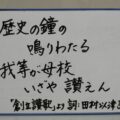 歴史の鐘の
鳴りわたる
我等が母校
いざや 讃えん
「創立讃歌」より 詞:田村以津